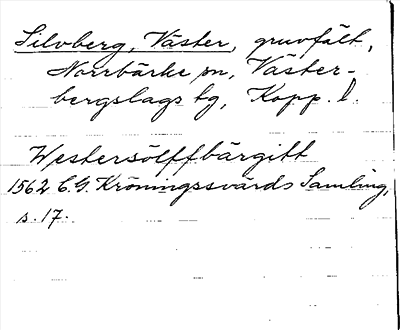 Silvberg, Väster, gruvfält,
Norrbärke sn, Väster-
bergslags tg, Kopp. l.
Westersölffbärgitt
1562 C.G. Kröningssvärds Samling,
s. 17.